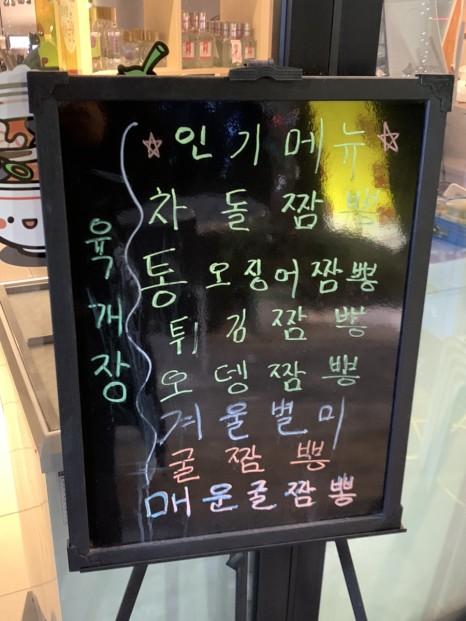 ☆인기메뉴☆
차돌짬뽕
통오징어짬뽕
튀김짬뽕
오뎅짬뽕
겨울별미
굴짬뽕
매운굴짬뽕
육개장